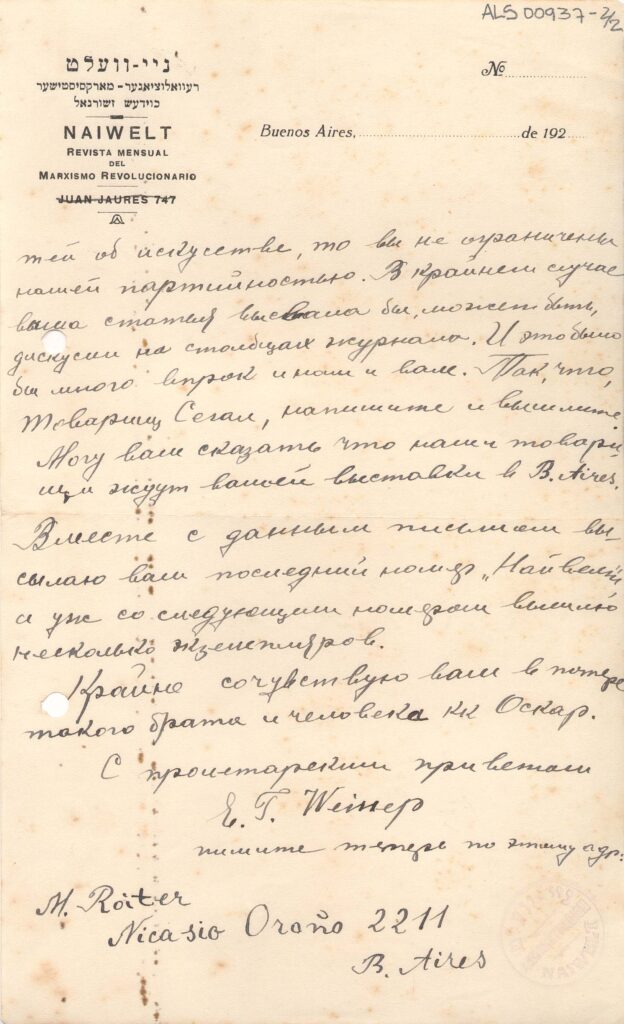 ALS 00937-2/2
נײ-וועלט
רעוואלוציאנער-מארקסיסטישער
כוידעש זשורנאל
NAIWELT
REVISTA MENSUAL
DEL
MARXISMO REVOLUCIONARIO
JUAN JAURES 747
No
Buenos Aires, de 192
тей об искусстве, то вы не ограничены
нашей партийностью. В крайнем случае
ваша статья вызвала бы, может быть,
дискусии на столбцах журнала. И это было
бы много впрок и нам и вам. Так, что,
товарищ Сегал, напишите и вышлите.
Могу вам сказать что наши товари
щи ждут вашей выставки в B. Aires.
Вместе с данным письмом вы-
сылаю вам последний номер „Найвелт"
а уж со следующим номером вышлю
несколько экземпляров.
Крайне сочувствую вам в потере
такого брата и человека кк Оскар.
С пролетарским приветом
Е. Г.
пишите теперь по этому адр:
M. Roiter
Nicasio Oroño 2211
B. Aires
NAIWELT